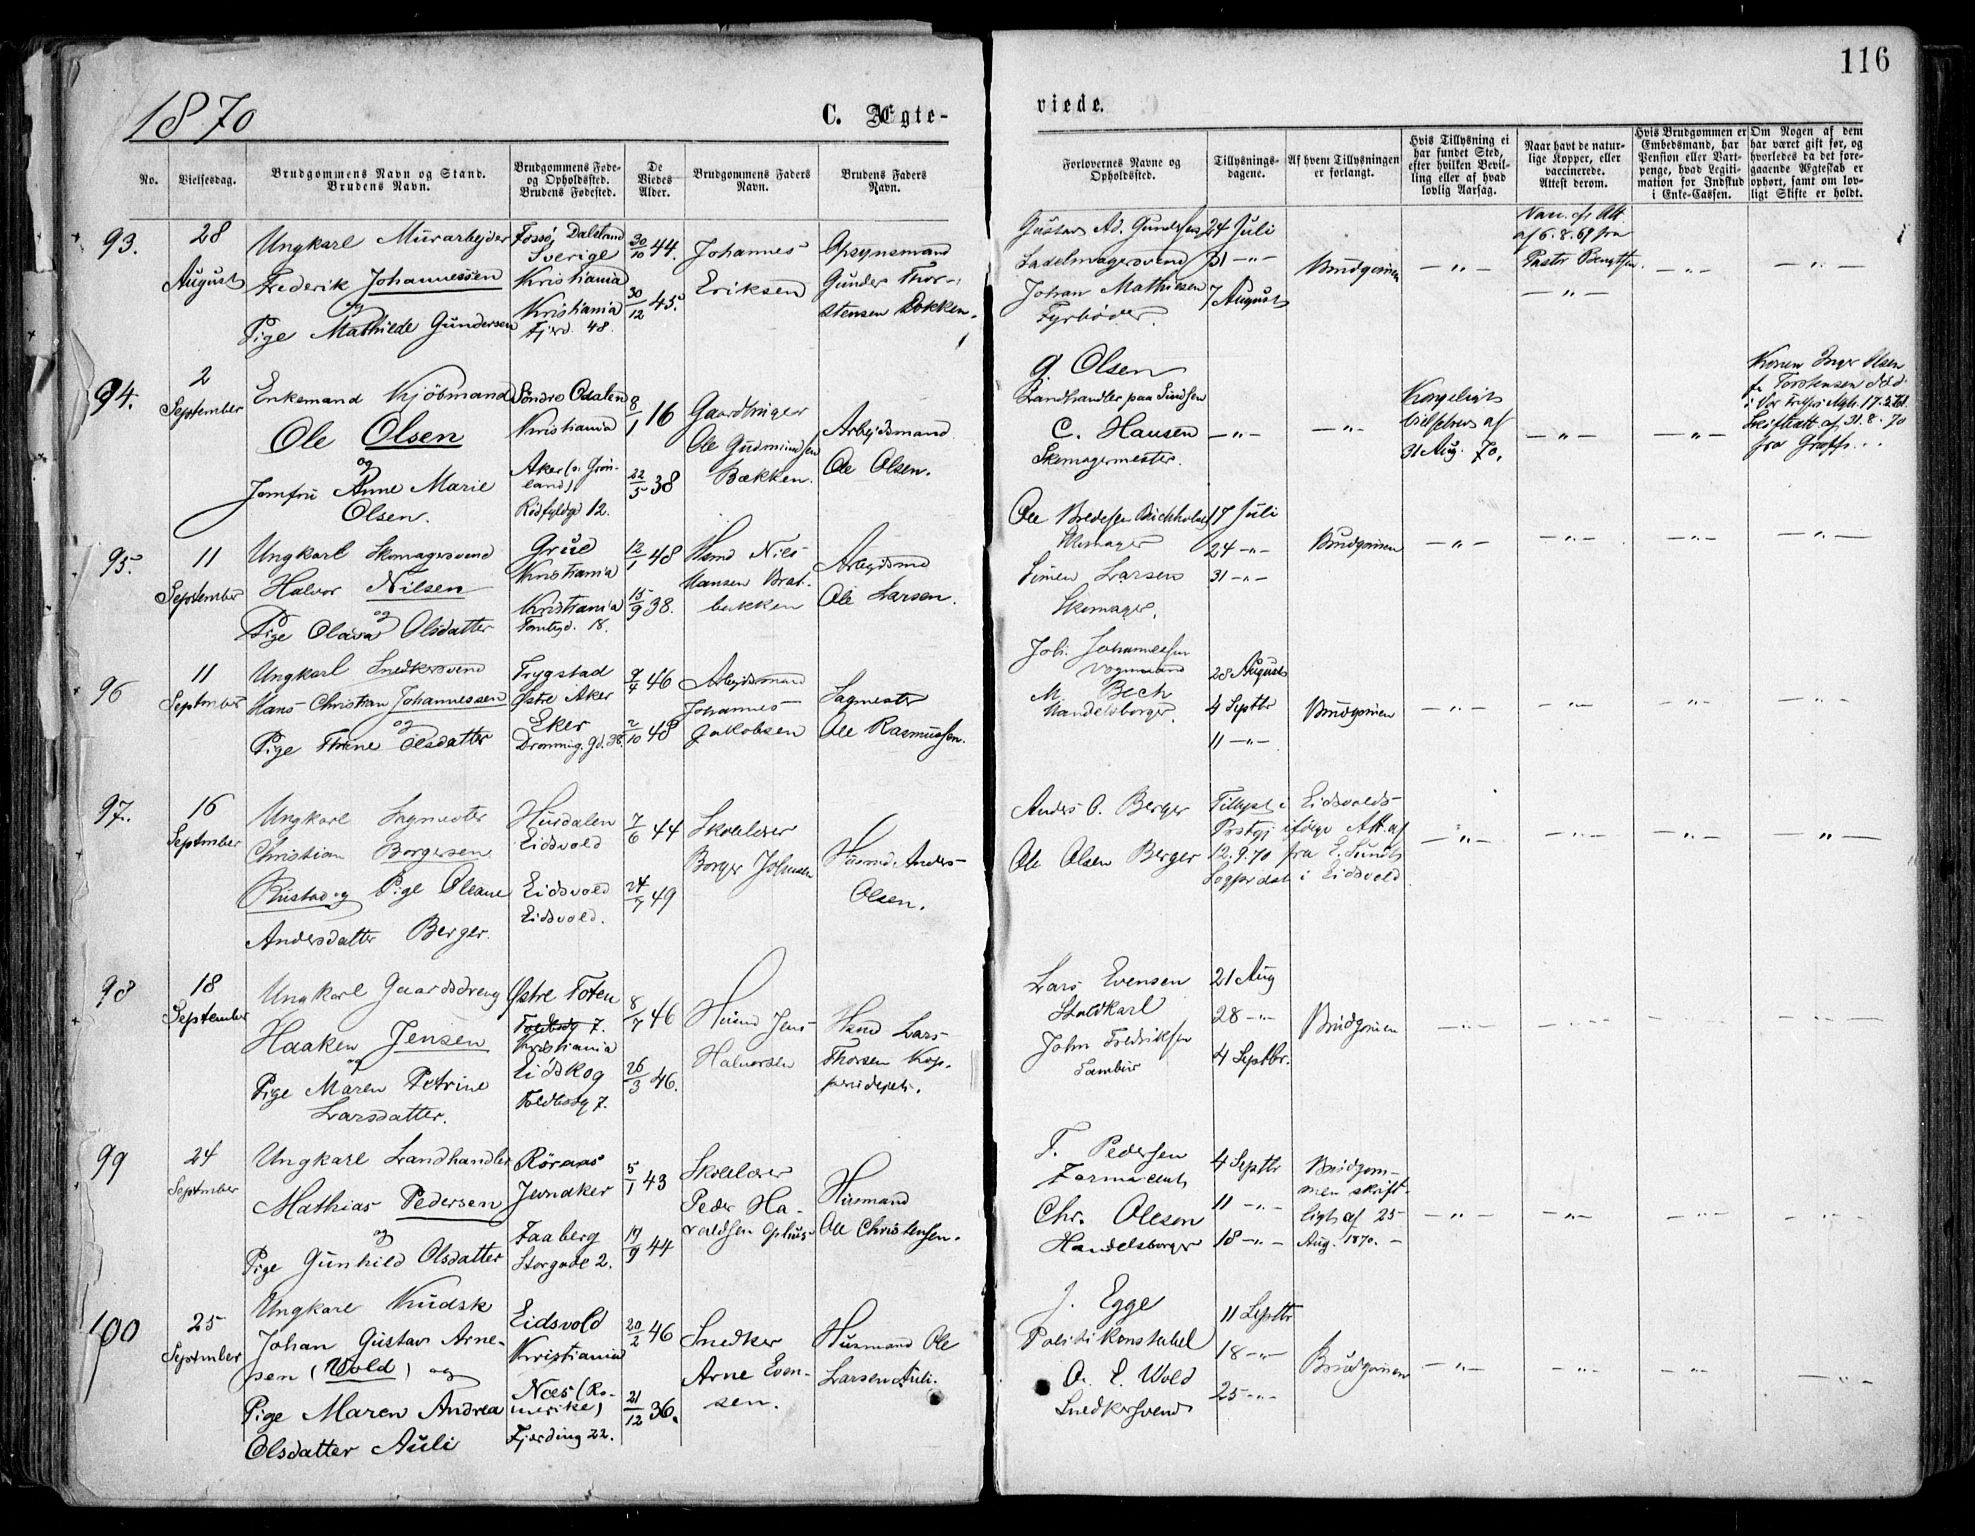 116
1870
C. Ægte-
viede.
No.
Vielsesdag.
Brudgommens Navn og Stand.
Brudens Navn.
Brudgommens Føde-
og Opholdssted.
Brudens Fødested.
De
Viedes
Alder.
Brudgommens Faders
Navn.
Brudens Faders
Navn.
Forlovernes Navne og
Opholdssted.
Tillysnings-
dagene.
Af hvem Tillysningen
er forlangt.
Hvis Tillysning ei
har fundet Sted,
efter hvilken Bevil-
ling eller af hvad
lovlig Aarsag.
Naar havt de natur-
lige Kopper, eller
vaccinerede.
Attest derom.
Hvis Brudgommen er
Embedsmand, har
Pension eller Vart-
penge, hvad Legiti-
mation for Indskud
i Enke-Cassen.
Om Nogen af dem
har været gift før, og
hvorledes da det fore-
gaaende Ægteskab er
ophørt, samt om lov-
ligt Skifte er holdt.
93.
28
August
Ungkarl Murarbejder
Frederik Johannessen
og
Pige Mathilde Gundersen
Dalsland
Sverige
Kristiania
Kristiania
Fjerd. 48.
30/10 44.
30/12 45.
Johannes
Eriksen
Opsynsmand
Gunder Thor-
stensen Dokken.
Gustav Ad. Gundersen
Sadelmagersvend
Johan Mathiesen
Fyrbøder.
24 Juli
31 -"-
7 August
Brudgommen
-"-
Vacc. efr Att.
af 6.8.69 fra
Pastor
-"-
-"-
-"-
94.
2
September
Enkemand Kjöbmand
Ole Olsen
og
Jomfru Anne Marie
Olsen.
Söndre Odalen
Kristiania
Aker (v. Grøn-
land)
Rødfyldgd 12.
8/1 16
22/5 38
Gaardbruger
Ole Gudmundsen
Bækken.
Arbejdsmand
Ole Olsen.
G. Olsen
Landhandler paa
C. Hansen
Skomagermester.
-"-
-"-
Kongeligt
af
31 Aug. 70.
-"-
-"-
Konen Inger Olsen
f. Torstensen död
i Vor Frelsers Mgh. 17. 2
af 31.8.70
fra
95.
11
September
Ungkarl Skomagersvend
Halvor Nilsen
og
Pige Olava Olsdatter
Grue
Kristiania
Kristiania
Tomtegd. 18.
12/1 48
15/9 38.
Husmd Nils
Hansen Brat-
bakken
Arbejdsmd
Ole Larsen.
Ole Bredesen Buchholdt
Skomager
Simen Larsen
Skomager.
17 Juli
24 -"-
31 -"-
Brudgommen
-"-
-"-
-"-
-"-
96
11
September
Ungkarl Snedkersvend
Hans Christian Johannessen
og
Pige Thrine Olsdatter
Trygstad
Østre Aker
Eker
Dronning. gd. 38.
9/4 46
2/10 48
Arbejdsmand
Johannes
Jakobsen
Sagmester
Ole Rasmussen.
Joh. Johannessen
Vognmand
M. Bech
Handelsborger.
28 August
4 Septbr
11 -"-
Brudgommen
-"-
-"-
-"-
-"-
97.
16
September
Ungkarl Sagmester
Christian Borgersen
Rustad og Pige Oleane
Andersdatter Berger.
Hurdalen
Eidsvold
Eidsvold
Eidsvold.
7/6 44
24/7 49
Skolelærer
Borger Johnsen
Husmd. Anders
Olsen.
Anders O. Berger
Ole Olsen Berger
Tillyst i Eidsvolds
Prstgj ifölge Att. af
12.9.70 fra E. Sundt
Sognprest i Eidsvold
-"-
-"-
-"-
-"-
98
18
September
Ungkarl Gaardsdreng
Haaken Jensen
og
Pige Maren Petrine
Larsdatter.
Østre Toten
Toldbdg 7.
Kristiania
Eidskog
Toldbodg 7.
8/7 46
26/3 46.
Husmd Jens
Halvorsen
Husmd Lars
Thorsen Kop-
Lars Evensen
Staldkarl
John Fredriksen
Tambur
21 Aug
28 -"-
4 Septbr.
Brudgommen
-"-
-"-
-"-
-"-
99
24
September
Ungkarl Landhandler
Mathias Pedersen
og
Pige Gunhild Olsdatter
Röraas
Jevnaker
Faaberg
Storgade 2.
5/1 43
19/9 44
Skolelærer
Peder Ha-
raldsen Ophus
Husmand
Ole Christensen.
T. Pedersen
Farmaceut
Chr. Olesen
Handelsborger
4 Septbr
11 -"-
18 -"-
Brudgom-
men skrift-
ligt af 25
Aug. 1870. -
-"-
-"-
-"-
-"-
100
25
September
Ungkarl Kudsk
Johan Gustav Arne-
sen (Wold) og
Pige Maren Andrea
Olsdatter Auli
Eidsvold
Kristiania
Næs (Ro-
merike)
Fjerding 22.
20/2 46
21/12 36.
Snedker
Arne Even-
sen.
Husmand Ole
Larsen Auli.
J. Egge
Politikonstabel
A. E. Wold
Snedkersvend
11 Septbr
18 -"-
25 -"-
Brudgommen
-"-
-"-
-"-
-"-